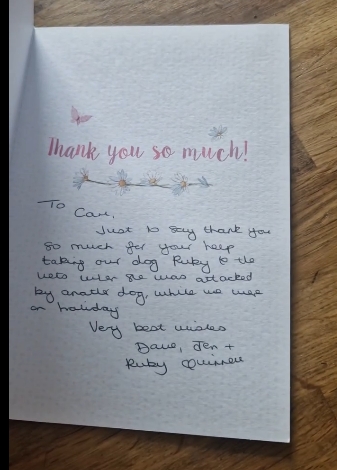 Thank you so much!
To
Just to say thank you
so much for your help
taking our dog Ruby to the
vets when she was attacked
by another dog, while we were
on holiday
Very best wishes
Dave, Jen +
Ruby